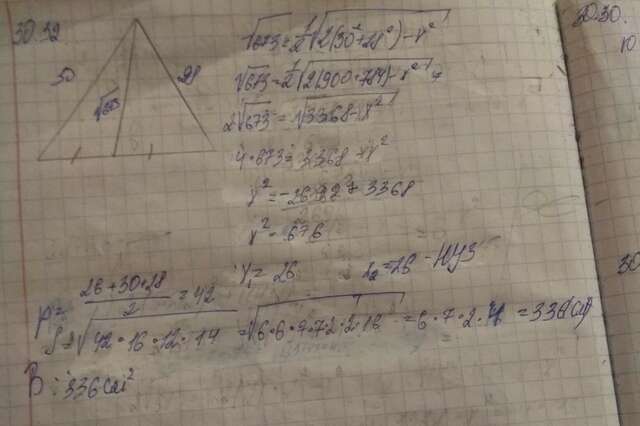 30.32
30
28
√673
√673 = 1/2 √2(30² + 28²) - x²
√673 = 1/2 √2(900 + 784) - x²
2√673 = √3368 - x²
4 * 673 = 3368 - x²
x² = -2692 + 3368
x² = 676
x₁ = 26
x₂ = -26
p = (26 + 30 + 28)/2 = 42
S = √42 * 16 * 12 * 14 = √6 * 6 * 7 * 7 * 2 * 2 * 16 = 6 * 7 * 2 * 4 = 336 (см²)
В: 336 см²
20.30.
10
30